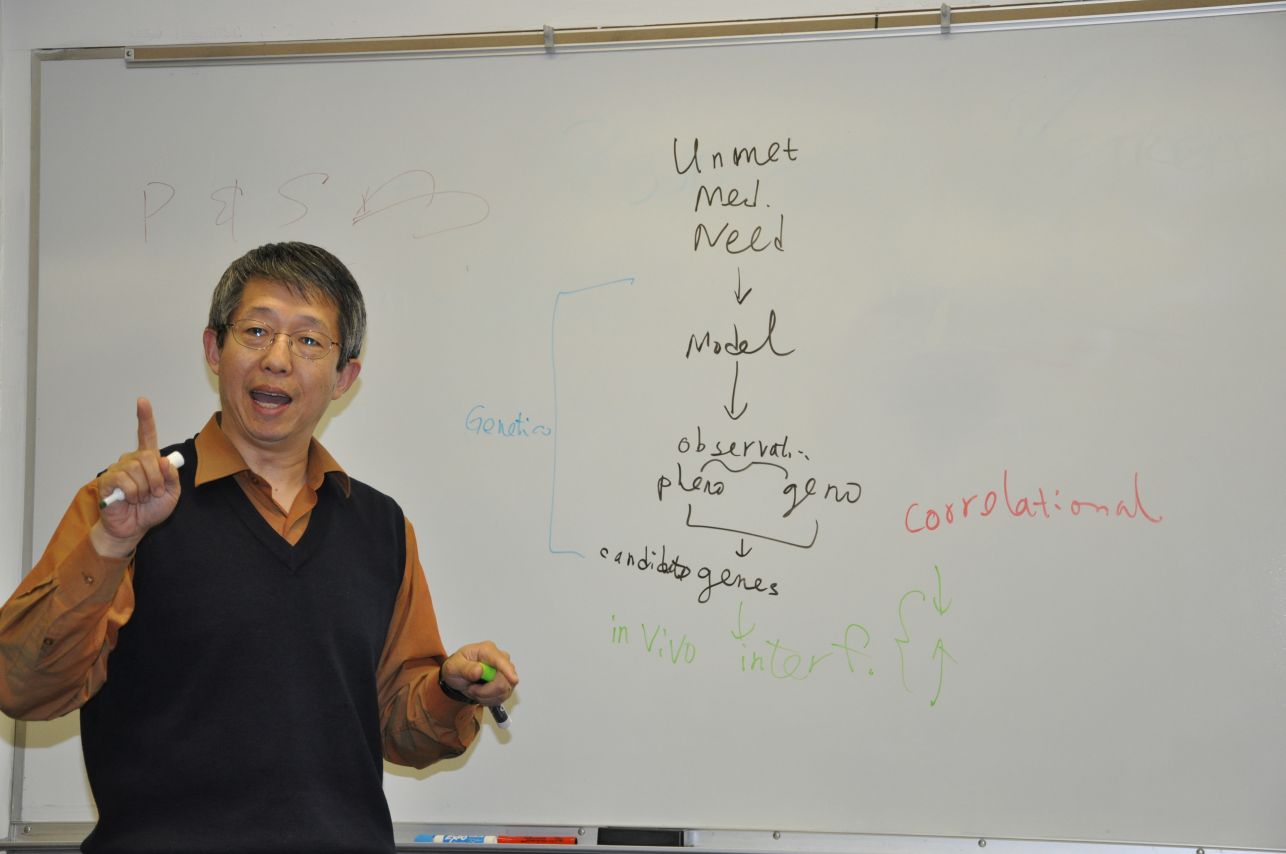 P & S
Unmet
Med.
Need
Model
Genetics
observati..
pheno geno
correlational
candidate genes
in vivo interf.
EXPO